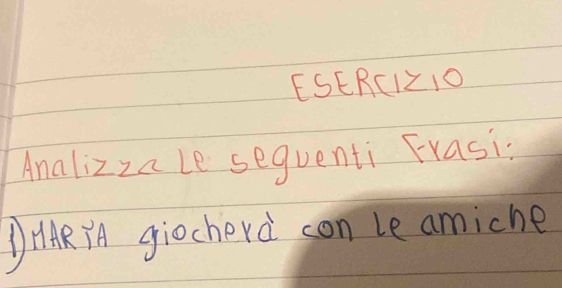 ESERCIZIO
Analizza le seguenti Frasi:
1) MARIA giocherà con le amiche